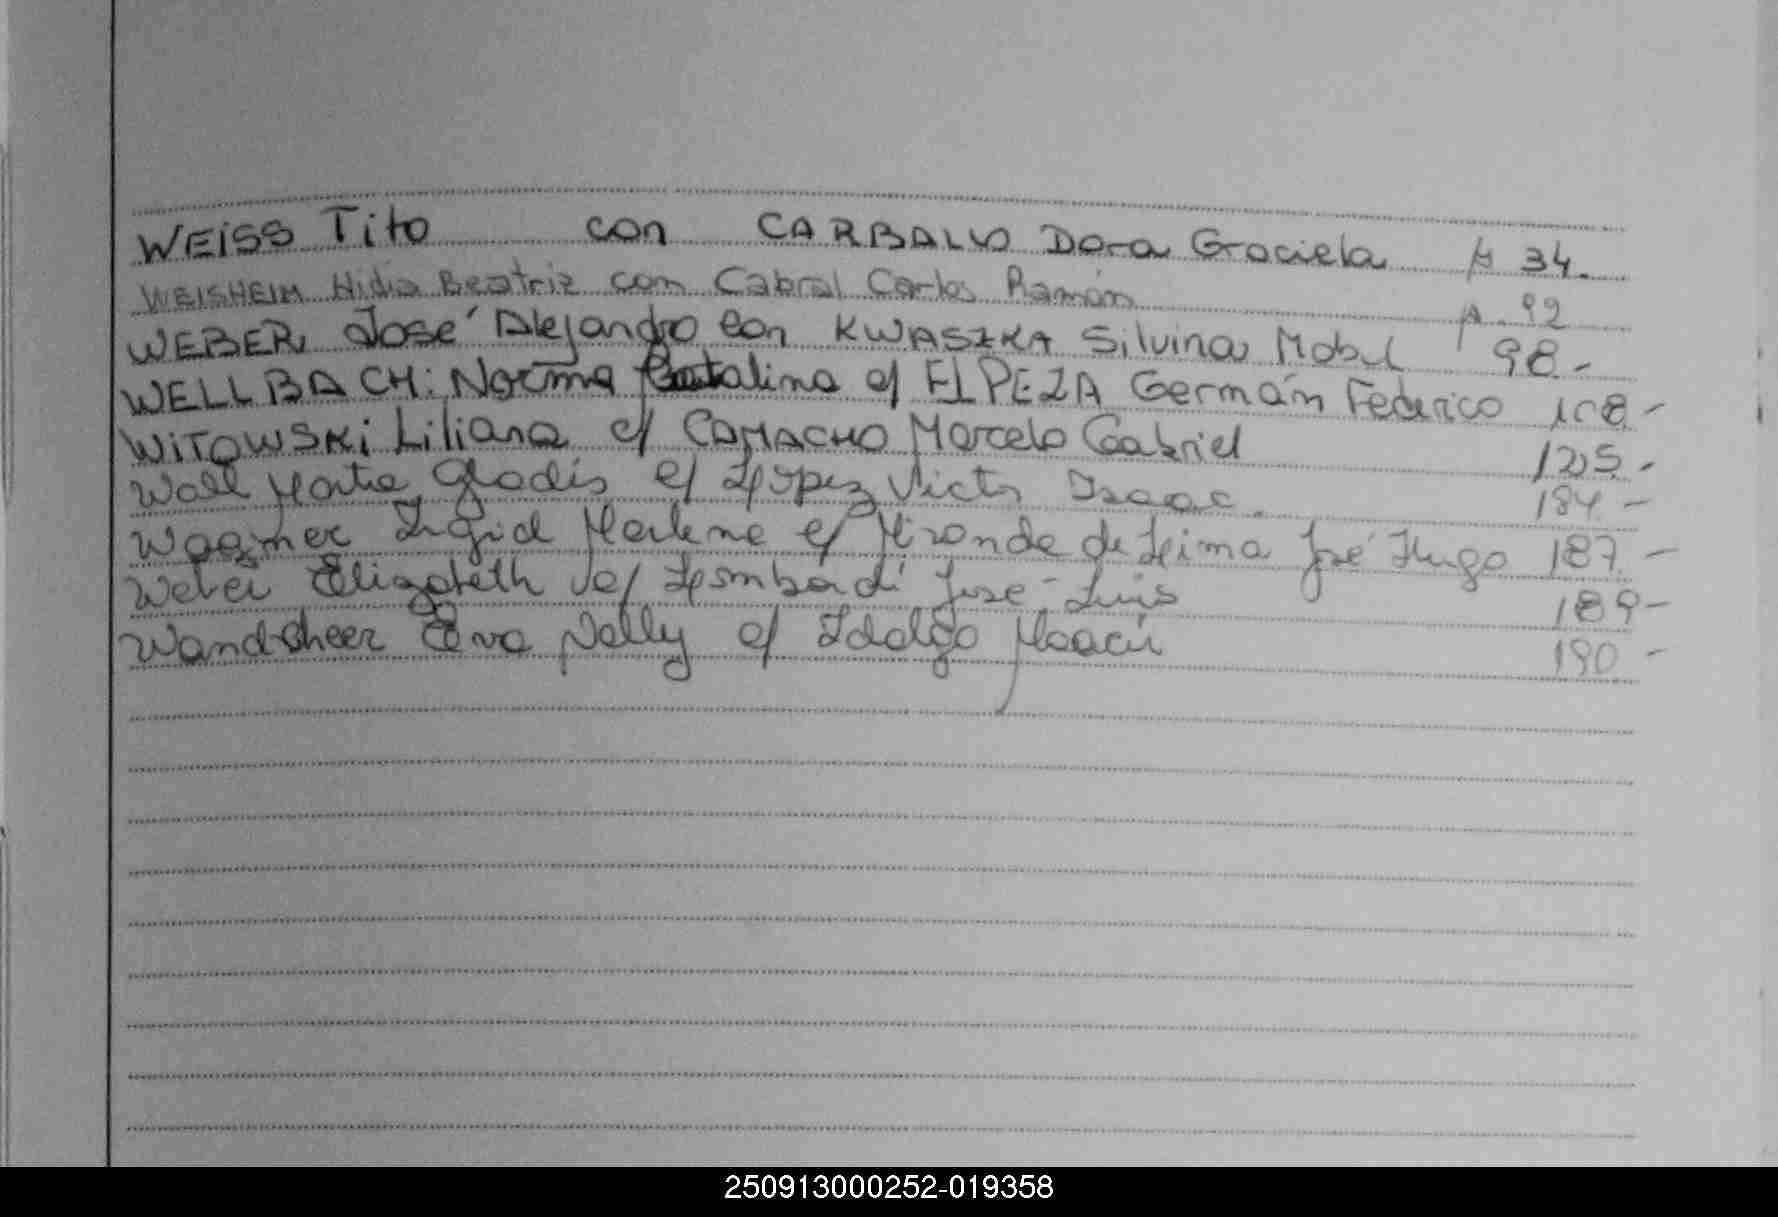 WEISS Tito con CARBALLO Dora Graciela A 34.
WEISHEIM Hidia Beatriz con Cabral Carlos Ramón A. 92
WEBER José Alejandro con KWASZKA Silvina Mabel 98-
WELLBACH: Norma Catalina c/ ELPEZA Germán Federico 108-
WITOWSKI Liliana c/ CAMACHO Marcelo Gabriel 125.-
Wall Marta Gladis c/ López Victor Isaac. 184-
Wagner Ingrid Marlene c/ Miranda de Lima José Hugo 187-
Weber Elizabeth c/ Lombardi José Luis 189-
Wandscheer Eva Nelly c/ Idalgo Moacir 190-
250913000252-019358